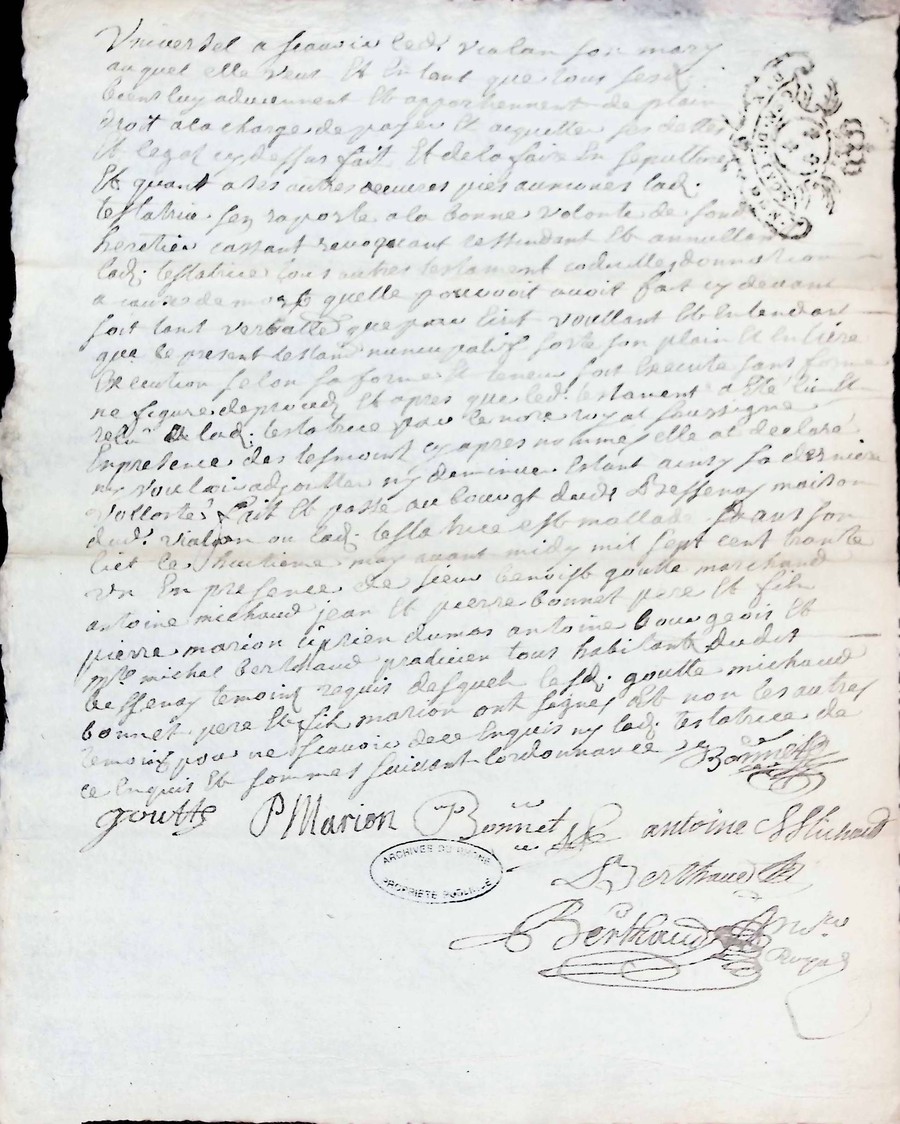 Universel a scavoir led. vialon son mary
auquel elle veut et entant que tous sesd.
biens luy adviennent et appartiennent de plain
droit ala charge de payer et aquitter ses dettes
et legat cy dessus fait et de la faire en sepulturer
et quant a ses autres oeuvres pies aumones lad.
testatrice sen raporte ala bonne volonte de sond.
heretier cassant revoquant et annullant
lad. testatrice tous autres testament codicilles donnation
a cause de mort quelle pouvoit avoir fait cy devant
soit tant verballe que par Ecrit voullant et Entendant
que le present testam nuncupatif sorte son plain et entiere
Execution selon sa forme et teneur soit Execute sans forme
ne figure de proced et apres que led. testament a Ete lu et
relu a lad. testatrice par le nore royal soussigne
En presence des tesmoins cy apres nommes elle at declare
ny vouloir adjoutter ny diminuer Estant ainsy sa derniere
vollonte fait et passe au bourgt dud. Bessenay maison
dud. vialon ou lad. testatrice est mallade dans son
liet le huitieme may avant midy mil sept cent trante
un En presence de sieur benoist goutte marchand
antoine michaud jean et pierre bonnet pere et fils
pierre marion ciprien dumas antoine bourgeois et
mre michel berthaud praticien tous habitants dudit
bessenay temoins requis desquels lesd. goutte michaud
bonnet pere et fils marion ont signes et non les autres
temoins pour ne scavoir de ce Enquis ny lad. testatrice de
ce Enquis et sommes suivant lordonnance
Bonnet
goutte PMarion Bonnet antoine Michaud
Berthaud
Berthaud nre
Royal
ARCHIVES DU RHONE
PROPRIETE PUBLIQUE